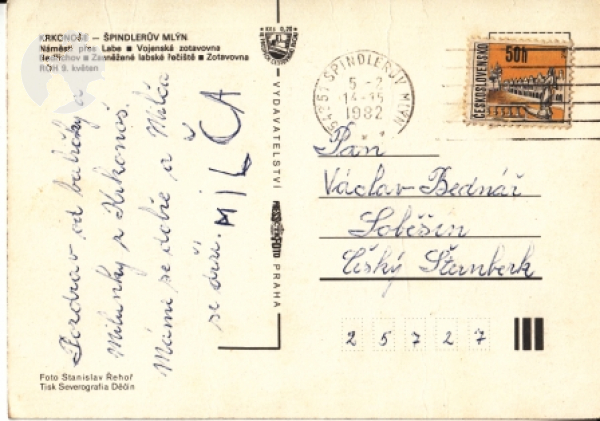 KRKONOŠE – ŠPINDLERŮV MLÝN
Náměstí přes Labe ■ Vojenská zotavovna
Bedřichov ■ Zasněžené labské řečiště ■ Zotavovna
ROH 9. květen
Pozdrav od babičky a
Milunky z Krkonoš.
Máme se dobře a Milča
se učí.
MILČA
Foto Stanislav Řehoř
Tisk Severografia Děčín
KČs 0,20
VYDAVATELSTVÍ
PRESSFOTO
PRAHA
543 51 ŠPINDLERŮV MLÝN
5 -2
14-15
1982
ČESKOSLOVENSKO
50h
Pan
Václav Bednář
Soběšín
Český Šternberk
2 5 7 2 7